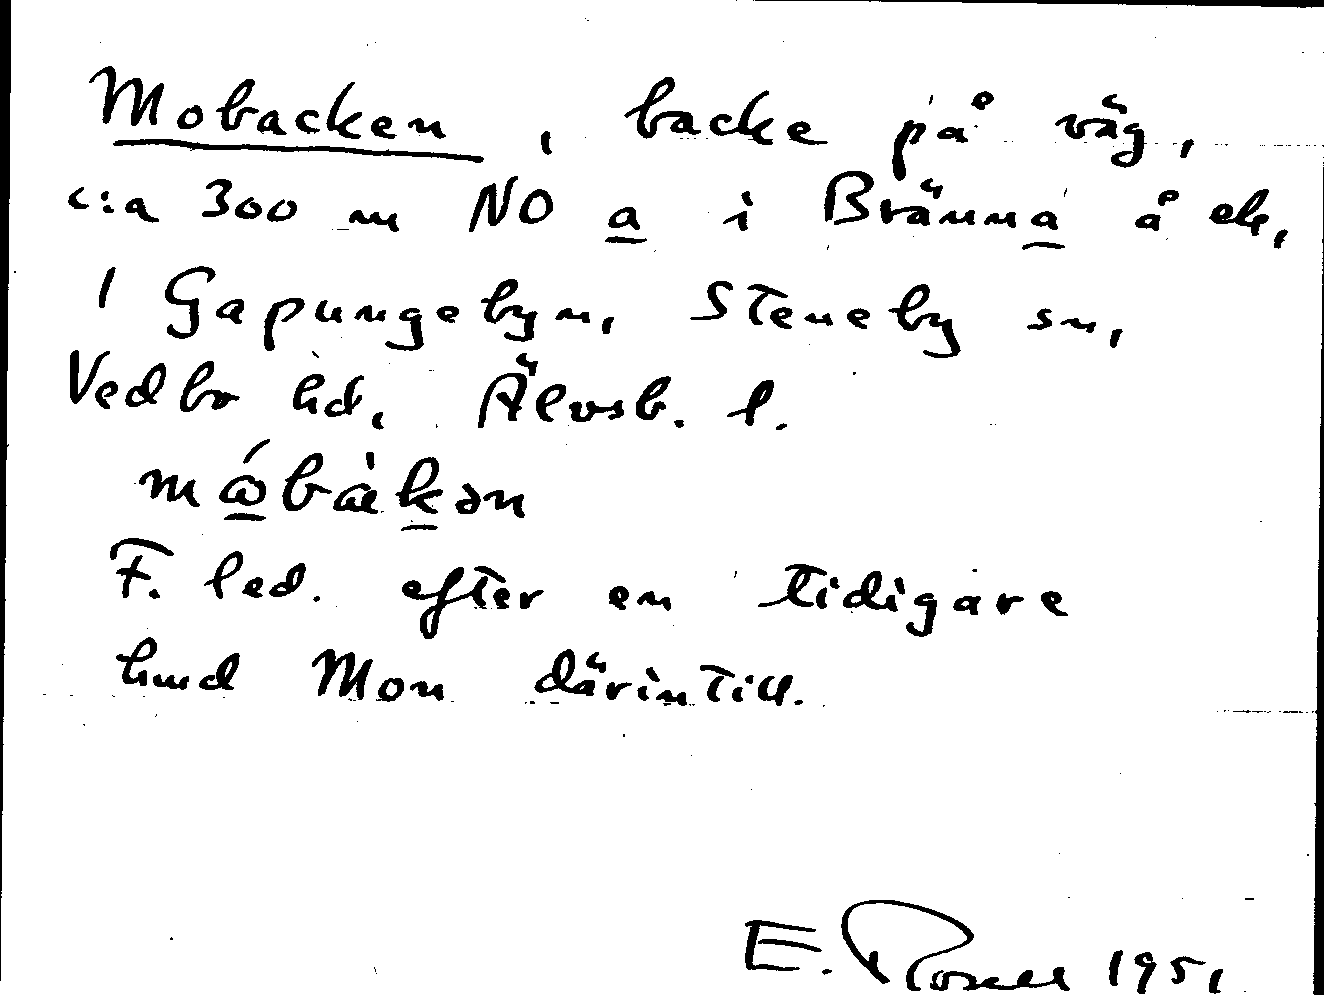 Mobacken, backe på väg,
c:a 300 m NO a i Bränna å ek,
1 Gapungebyn, Steneby sn,
Vedbo hd, Älvsb. l.
F. led. efter en tidigare
hmd Mon därintill.
E. 1951